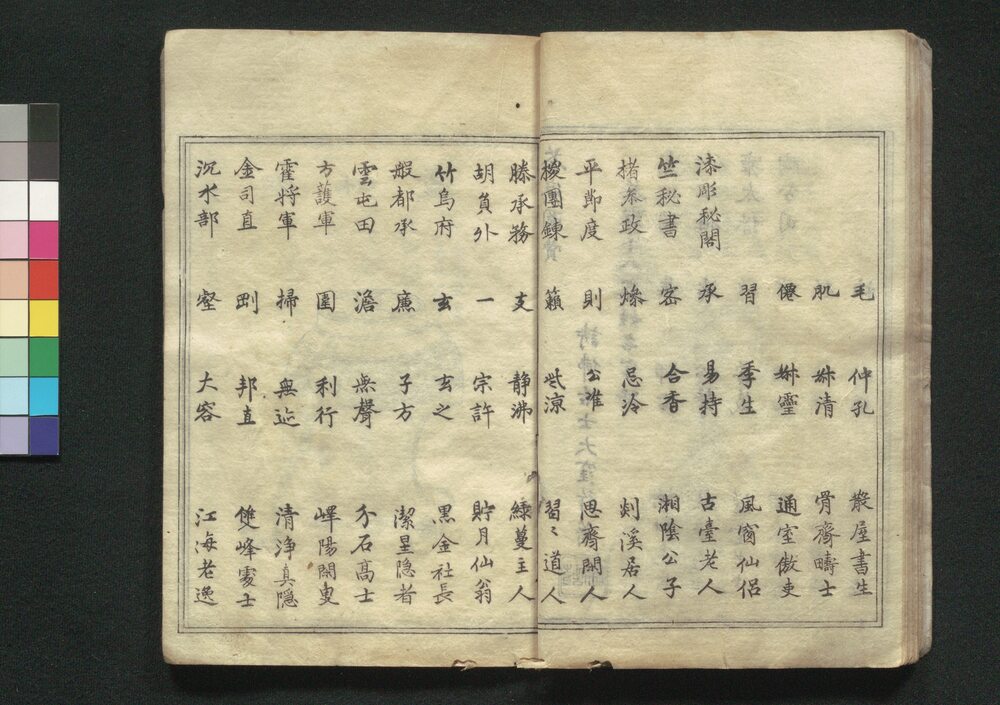 毛 仲孔 叢屋書生
肌 姉清 骨齋疇士
僊 姉靈 通室傲吏
習 季生 風窗仙侶
漆彫秘閣 承 易持 古臺老人
竺秘書 密 合香 湘陰公子
楮叅政 燥 忌冷 剡溪居人
平節度 則 公准 思齋閑人
椶團鍊 籟 姉涼 習〻道人
滕承務 支 靜沸 綠蔓主人
胡員外 一 宗許 貯月仙翁
竹烏府 玄 玄之 黒金社長
般都承 廉 子方 潔星隠者
雲屯田 澹 無聲 介石高士
方護軍 圍 利行 嶧陽閑叟
霍將軍 掃 無迹 清浄真隠
金司直 剛 邦直 雙峰處士
沉水部 壑 大容 江海老逸